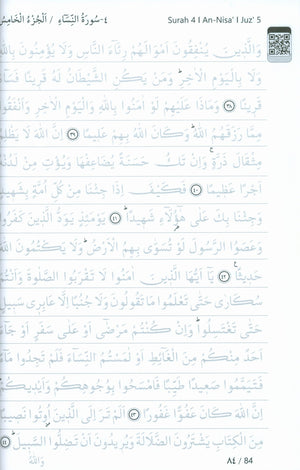 ٤-سُورَةُ النِّسَاءِ / اَلْجُزْءُ الْخَامِسُ Surah 4 I An-Nisa' I Juz' 5
وَالَّذِينَ يُنْفِقُونَ أَمْوَالَهُمْ رِئَاءَ النَّاسِ وَلَا يُؤْمِنُونَ بِاللهِ
وَلَا بِالْيَوْمِ الْآخِرِ وَمَنْ يَكُنِ الشَّيْطَانُ لَهُ قَرِينًا فَسَاءَ
قَرِينًا ٣٨ وَمَاذَا عَلَيْهِمْ لَوْ آمَنُوا بِاللهِ وَالْيَوْمِ الْآخِرِ وَأَنْفَقُوا
مِمَّا رَزَقَهُمُ اللهُ وَكَانَ اللهُ بِهِمْ عَلِيمًا ٣٩ إِنَّ اللهَ لَا يَظْلِمُ
مِثْقَالَ ذَرَّةٍ وَإِنْ تَكُ حَسَنَةً يُضَاعِفْهَا وَيُؤْتِ مِنْ لَدُنْهُ
أَجْرًا عَظِيمًا ٤٠ فَكَيْفَ إِذَا جِئْنَا مِنْ كُلِّ أُمَّةٍ بِشَهِيدٍ
وَجِئْنَا بِكَ عَلَى هَؤُلَاءِ شَهِيدًا ٤١ يَوْمَئِذٍ يَوَدُّ الَّذِينَ كَفَرُوا
وَعَصَوُا الرَّسُولَ لَوْ تُسَوَّى بِهِمُ الْأَرْضُ وَلَا يَكْتُمُونَ اللهَ
حَدِيثًا ٤٢ يَا أَيُّهَا الَّذِينَ آمَنُوا لَا تَقْرَبُوا الصَّلَوةَ وَأَنْتُمْ
سُكَارَى حَتَّى تَعْلَمُوا مَا تَقُولُونَ وَلَا جُنُبًا إِلَّا عَابِرِي سَبِيلٍ
حَتَّى تَغْتَسِلُوا وَإِنْ كُنْتُمْ مَرْضَى أَوْ عَلَى سَفَرٍ أَوْ جَاءَ
أَحَدٌ مِنْكُمْ مِنَ الْغَائِطِ أَوْ لَمَسْتُمُ النِّسَاءَ فَلَمْ تَجِدُوا مَاءً
فَتَيَمَّمُوا صَعِيدًا طَيِّبًا فَامْسَحُوا بِوُجُوهِكُمْ وَأَيْدِيكُمْ
إِنَّ اللهَ كَانَ عَفُوًّا غَفُورًا ٤٣ أَلَمْ تَرَ إِلَى الَّذِينَ أُوتُوا نَصِيبًا
مِنَ الْكِتَابِ يَشْتَرُونَ الضَّلَالَةَ وَيُرِيدُونَ أَنْ تَضِلُّوا السَّبِيلَ ٤٤
وَاللهُ ٨٤ / 84